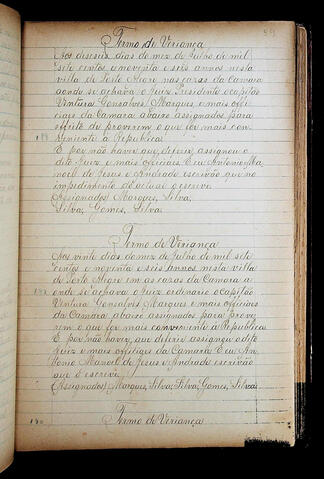 Termo de Veriança
Aos deseseis dias do mez de Julho de mil
sete centos e noventa e seis annos nesta
villa de Porto Alegre nas casas da Camara
aonde se achava o Juiz Presidente o capitão
Ventura Gonsalves Marques e mais offi
ciaes da Camara abaixo assignados para
effeito de proverem o que for mais con
veniente á Republica
E por não haver que deferir assignou o
dito Juiz e mais officiaes Eu Antonio Ma
noel de Jesus e Andrade escrivão que no
impedimento do actual o escrevi
Assignados Marques, Silva,
Silva, Gomes, Silva.
Termo de Veriança
Aos vinte dias do mez de Julho de mil sete
centos e noventa e seis annos nesta villa
de Porto Alegre em as casas da Camara a
onde se achava o Juiz ordinario o capitão
Ventura Gonsalves Marques e mais officiaes
da Camara abaixo assignados para prove
rem o que for mais conveniente á Republica
E por não haver que deferir assignou o dito
Juiz e mais officiaes da Camara E eu An
tonio Manoel de Jesus e Andrade escrivão
que o escrevi
(Assignados) Marques, Silva, Silva, Gomes, Silva.
Termo de Veriança